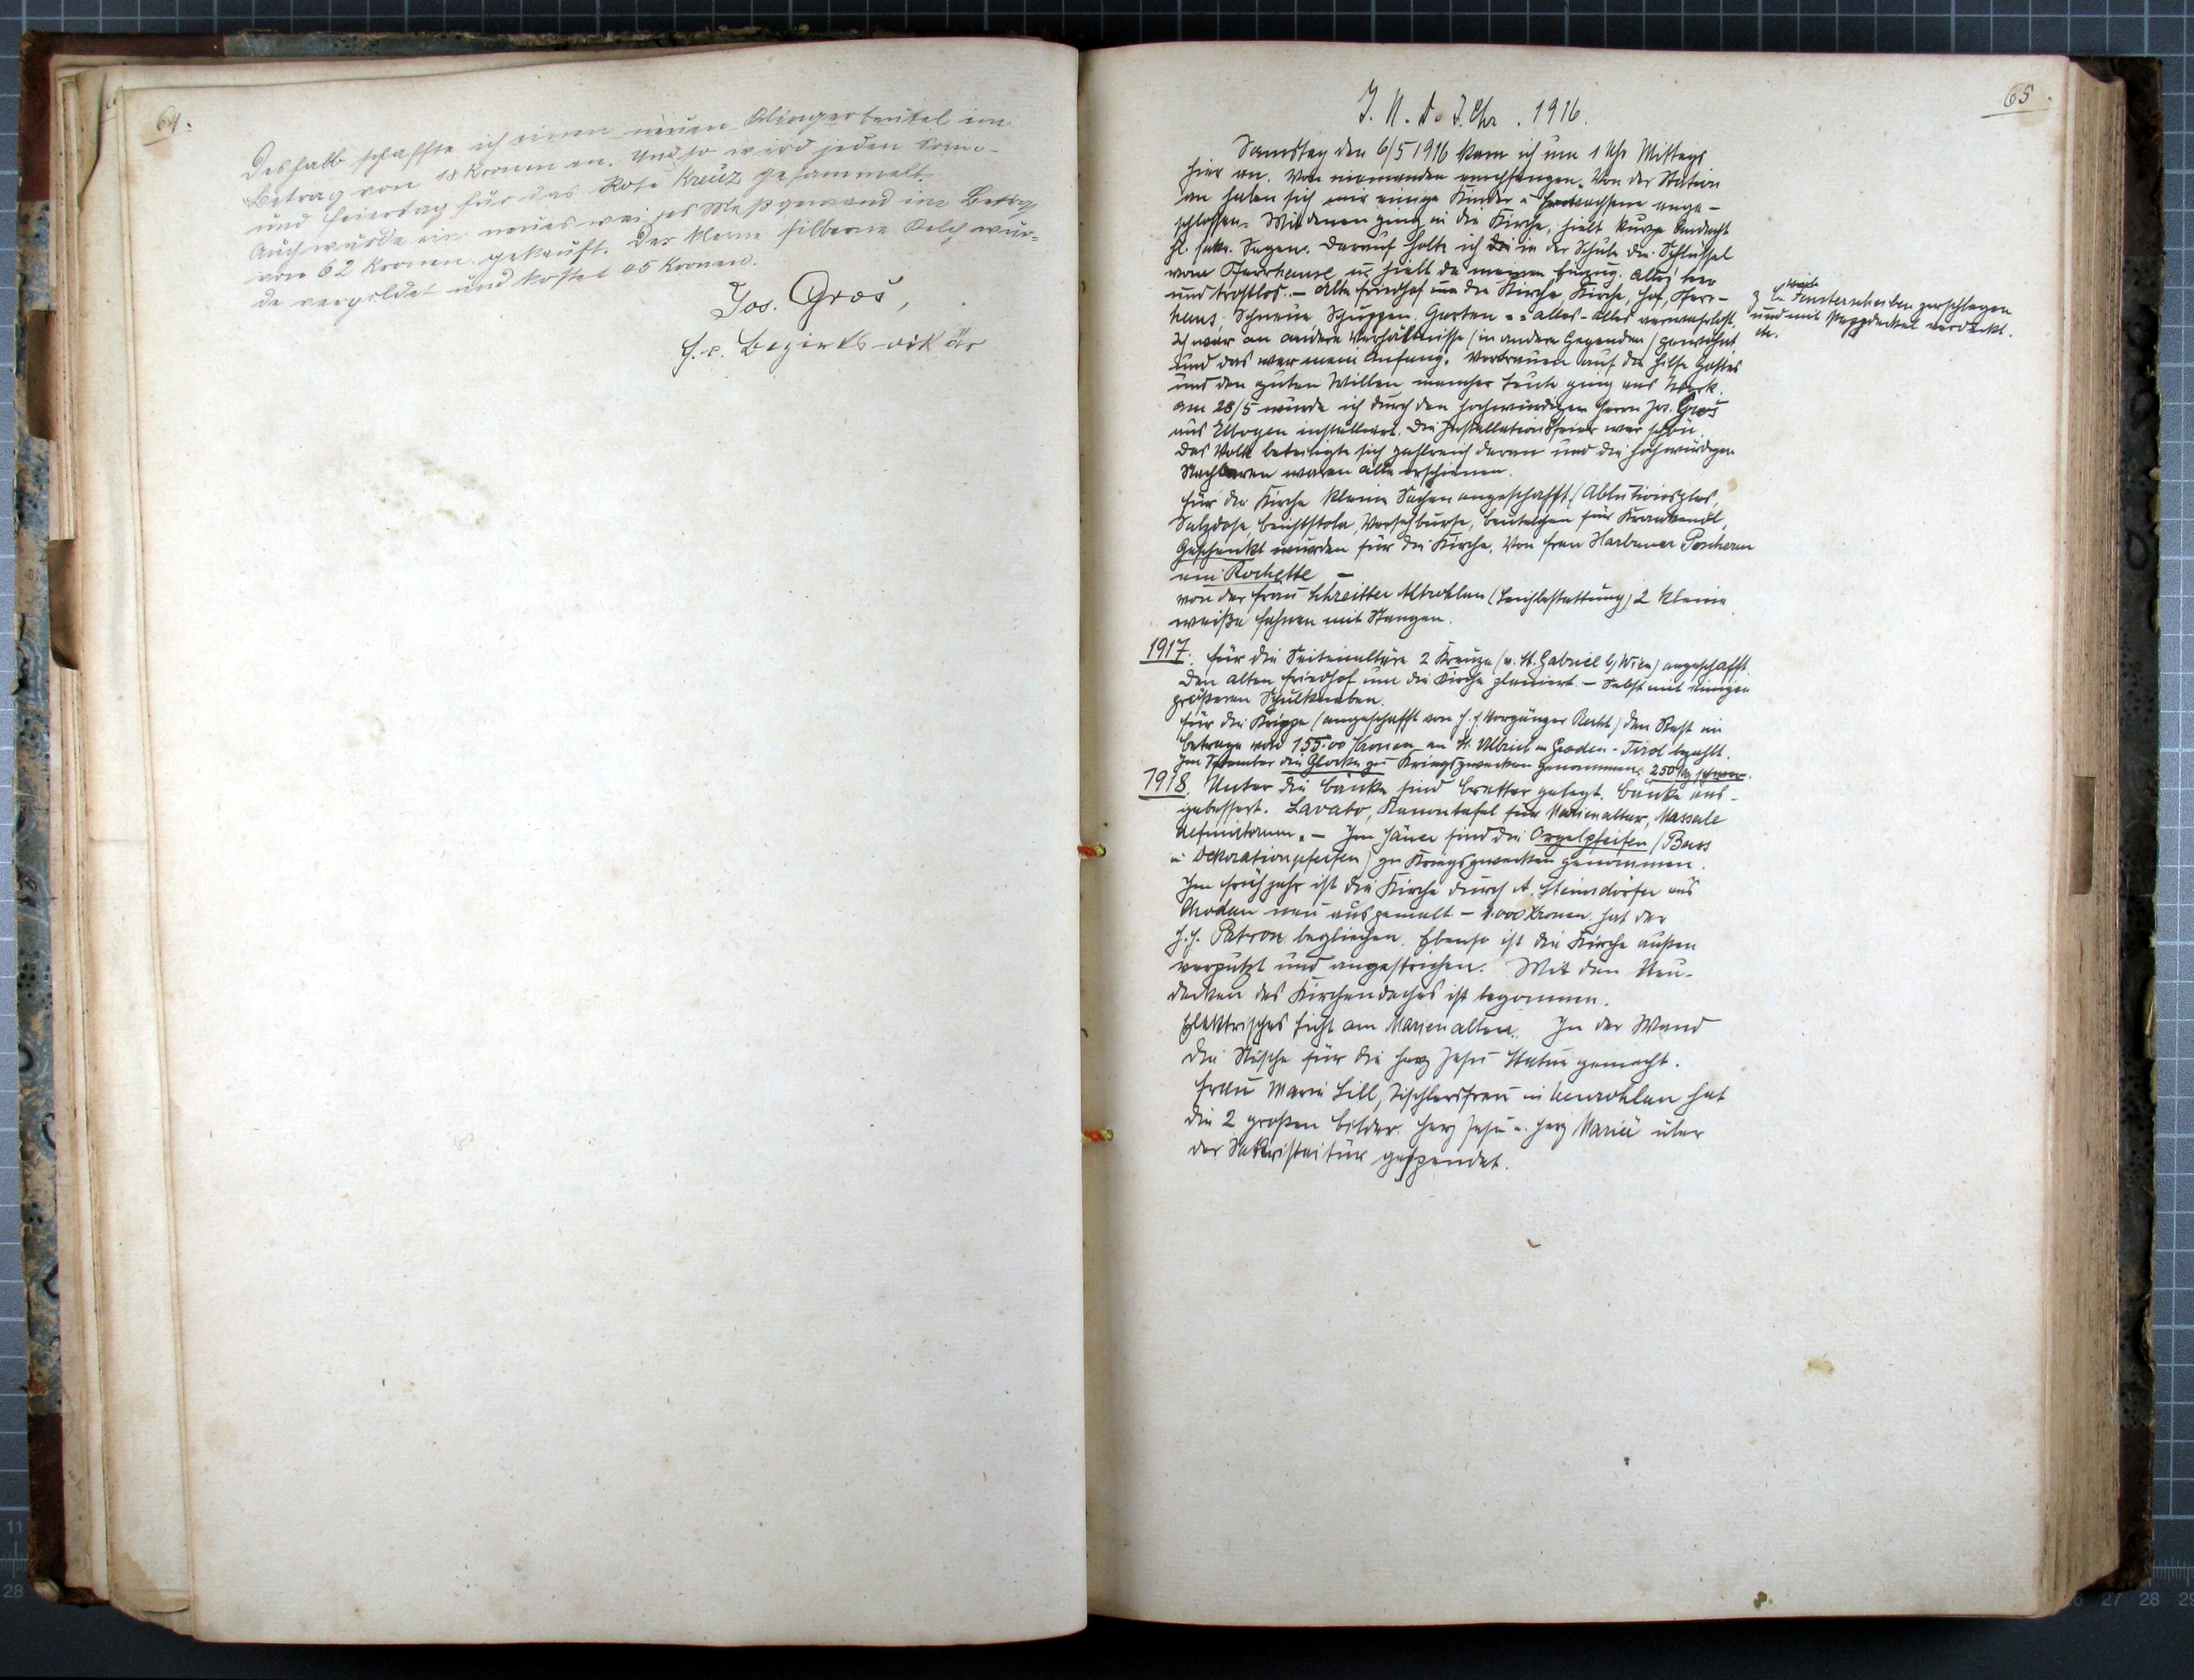 64.
Deshalb schaffte ich einen neuen Klingerbeutel im
Betrag von 18 Kronen an. Und so wird jeden Sonn-
und Feiertag für das Rote Kreuz gesammelt.
Auch wurde ein neues weißes Meßgewand im Betrag
von 62 Kronen gekauft. Der kleine silberne Kelch wur-
de vergoldet und kostet 45 Kronen.
Jos. Gros,
f.e. Bezirksvikär
65.
I. N. D. J. Chr. 1916.
Samstag den 6/5 1916 kam ich um 1 Uhr Mittags
hier an. Von niemanden empfangen. Von der Station
an haben sich mir einige Kinder u Erwachsene ange-
schlossen. Mit denen ging in die Kirche, hielt kurze Andacht
hl. sakr. Segen. Darauf holte ich in der Schule die Schlüssel
vom Pfarrhause u. hielt da meinen Einzug. Alles leer
und trostlos. – Alte Friedhof um die Kirche, Kirche, Hof, Pfarr-
haus, Scheune, Schuppen, Garten = alles – alles verwahrlost.
z Fensterscheiben zerschlagen
und mit Pappdeckel verdeckt.
etc.
Ich war an andere Verhältnisse (in andere Gegenden) gewöhnt
und das war mein Anfang. Vertrauen auf die Hilfe Gottes
und den guten Willen mancher Leute ging ans Werk.
Am 28/5 wurde ich durch den hochwürdigen Herrn Jos. Gros
aus Elbogen installiert. Die Installationsfeier war schön.
Das Volk beteiligte sich zahlreich daran und die hochwürdigen
Nachbaren waren alle erschienen.
Für die Kirche kleine Sachen angeschafft (Ablutionsglas,
Salzdose, Beichtstola, Versehburse, Beutelchen für Krankenöl,
Geschenkt wurden für die Kirche. Von Frau Poschezau
ein Rochette –
von der Frau Schreitter Altrohlau (Leichbestattung) 2 kleine
weiße Fahnen mit Stangen.
1917. Für die Seitenaltäre 2 Kreuze (v. St. Gabriel b/ Wien) angeschafft
Den alten Friedhof um die Kirche planiert. – Selbst mit einigen
größeren Schulknaben.
Für die Krippe (angeschafft von H. H. Vorgänger ) den Rest im
Betrage von 155.00 Kronen an in Groden – Tirol bezahlt.
Im die Glocke zu Kriegszwecken genommen. 250 kg schwer.
1918. Unter die Bänke sind Bretter gelegt. Bänke aus-
gebessert. Lavabo, Kanontafel für Marienaltar, Missale
defunctorum. – Im Jäner sind die Orgelpfeifen (Bass
u Dekorationspfeifen) zu Kriegszwecken genommen.
Im Frühjahr ist die Kirche durch A. Steinsdörfer aus
Chodau neu ausgemalt – 1.000 Kronen hat der
H. H. Patron beglichen. Ebenso ist die Kirche außen
verputzt und angestrichen. Mit den Neu-
decken des Kirchendaches ist begonnen.
Elektrisches Licht am Marienaltar. In der Wand
die Nische für die Herz Jesu Statue gemacht.
Frau Marie Lill, Tischlersfrau in Neurohlau hat
die 2 großen Bilder. Herz Jesu u. Herz Mariä über
der Sakristeitür gespendet.